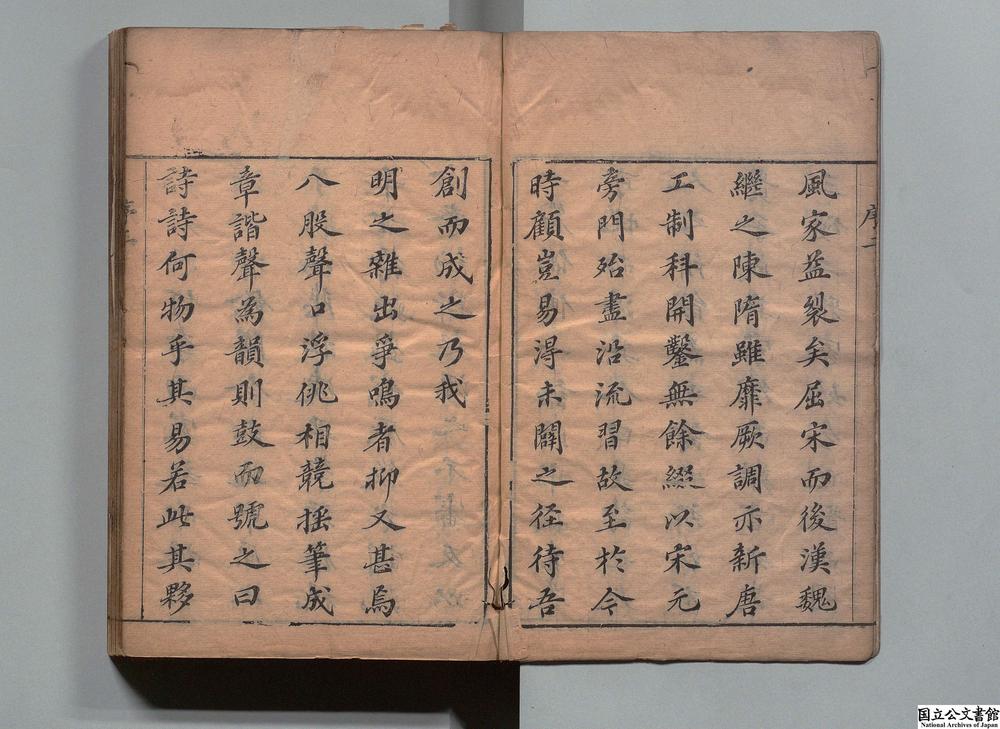 風家益裂矣屈宋而後漢魏
繼之陳隋雖靡厥調亦新唐
工制科開鑿無餘綴以宋元
旁門殆盡沿流習故至於今
時顧豈易得未闢之徑待吾
創而成之乃我
明之雜出爭鳴者抑又甚焉
八股聲口浮佻相競搖筆成
章諧聲為韻則鼓而號之曰
詩詩何物乎其易若此其夥
序二
国立公文書館
National Archives of Japan